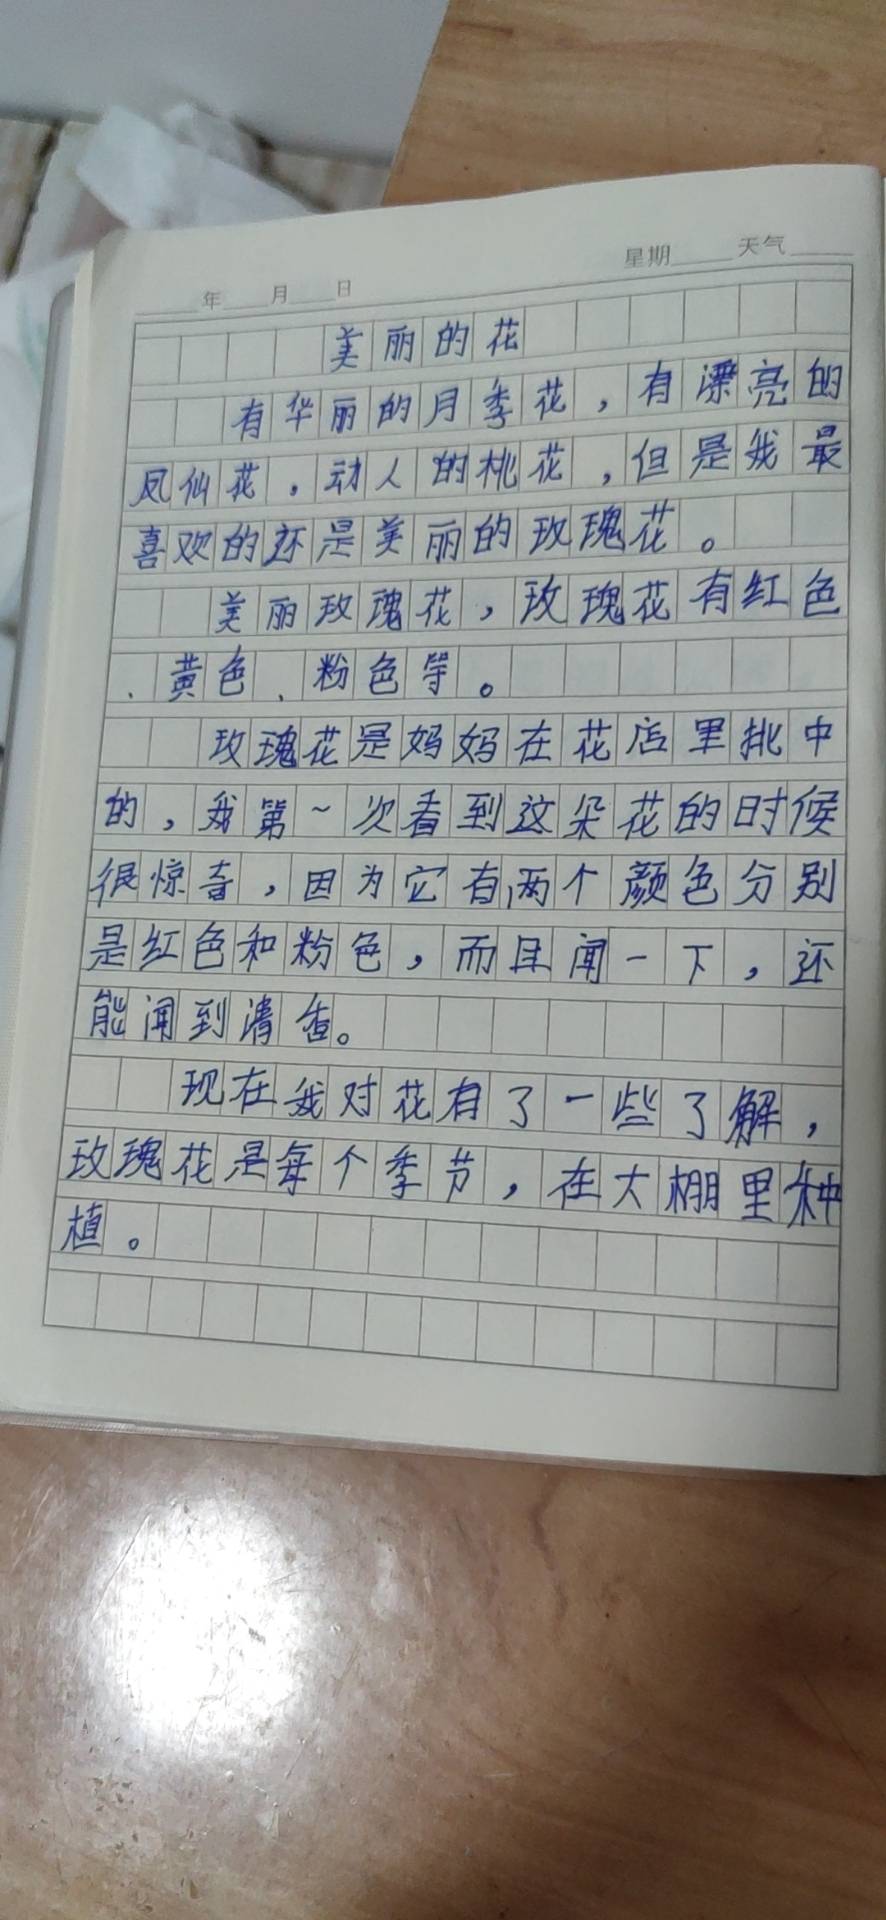 年 月 日 星期 天气
美丽的花
有华丽的月季花，有漂亮的
凤仙花，动人的桃花，但是我最
喜欢的还是美丽的玫瑰花。
美丽玫瑰花，玫瑰花有红色
、黄色、粉色等。
玫瑰花是妈妈在花店里挑中
的，我第一次看到这朵花的时候
很惊奇，因为它有两个颜色分别
是红色和粉色，而且闻一下，还
能闻到清香。
现在我对花有了一些了解，
玫瑰花是每个季节，在大棚里种
植。